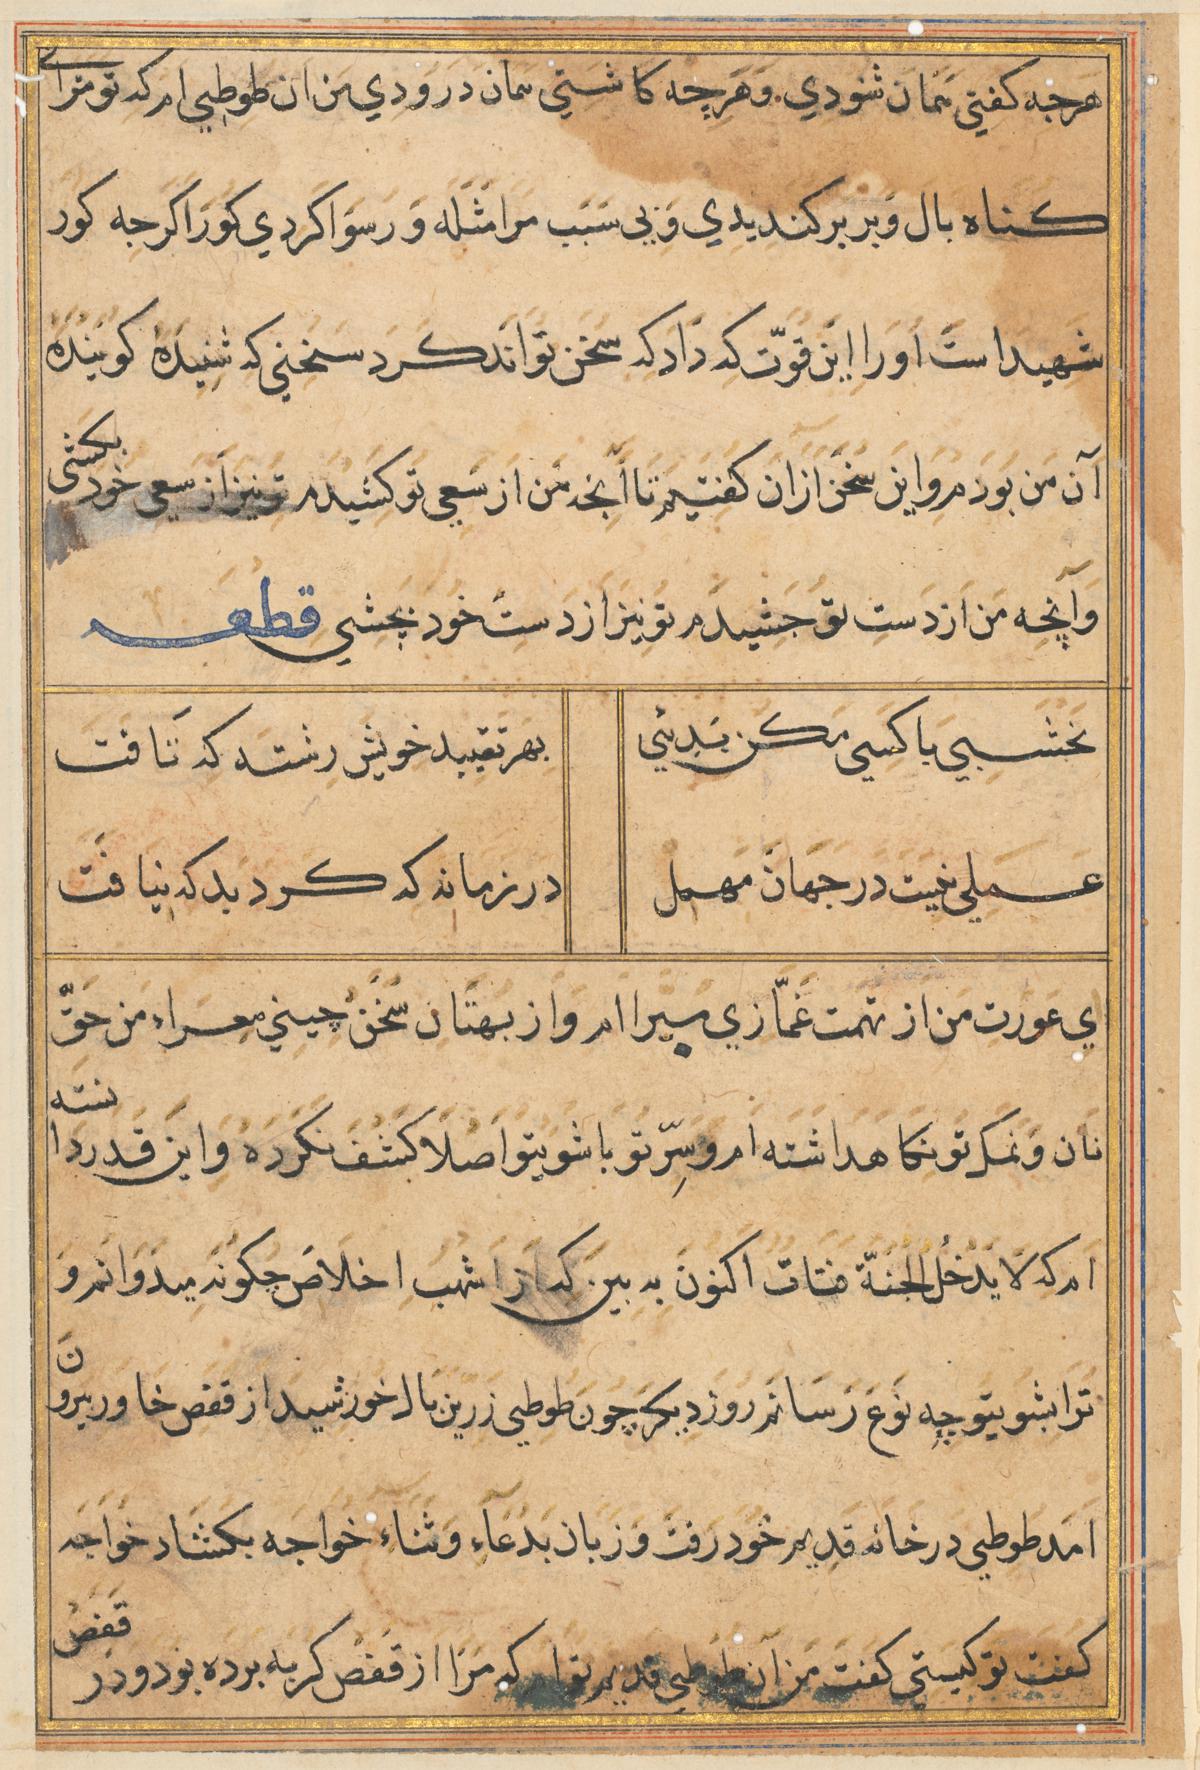 هرجه کفتی همان شنودي وهرچه کاشتي همان درودي من ان طوطيي ام که تو مرا بے
کناه بال وپر برکنديدي وبي سبب مرا مثله و رسوا کردي کور اکرجه کور
شهيدا ست اورا اين قوّت که داد که سخن تواند کرد سخني که شنيدۀ کوينده
آن من بودم واين سخن ازان کفتيم تا آنچه من از سعي تو کشيدم تو نيز از سعي خود بکشي
وآنچه من از دست تو جشيدم تو نيز از دست خود بچشي قطعه
نخشبي با کسي مکن بديئي بهر تقييد خويش رشته که تافت
عملي نيست در جهان مهمل در زمانه که کرد بد که نيافت
اي عورت من از تهمت غمّازي مبرا ام واز بهتان سخن چيني معراء من حقّ
نان ونمک تو نکاهداشته ام وسِرّ تو با شويتو اصلا کشف نکرده واين قدر دانسته
ام که لا يدخل الجنة قتات اکنون به بين که از اشهب اخلاص چکونه ميدوانم و
ترا بشويتو چه نوع رسانم روز ديکر چون طوطي زرين بال خورشيد از قفص خاور بيرون
امد طوطي در خانۀ قديم خود رفت و زبان بدعاء وثناء خواجه بکشاد خواجه
کفت تو کيستي کفت من آن طوطي قديم توام که مرا از قفص کربه برده بود ودر قفص